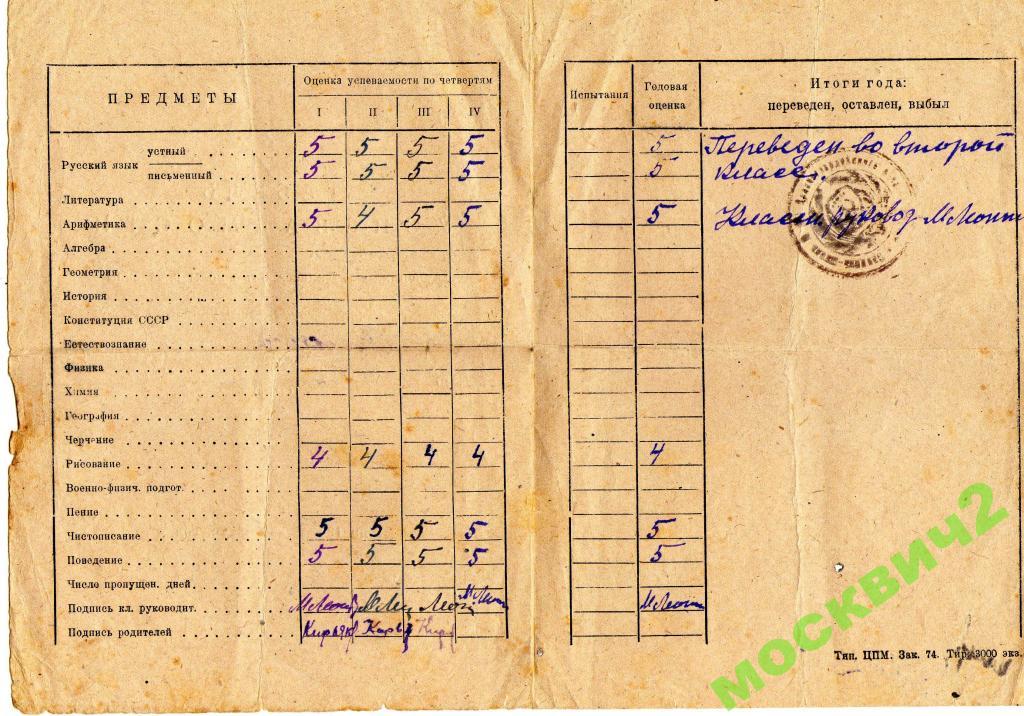 ПРЕДМЕТЫ
Оценка успеваемости по четвертям
I II III IV
Испытания
Годовая оценка
Итоги года:
переведен, оставлен, выбыл
Русский язык
устный 5 5 5 5 5
письменный 5 5 5 5 5
Переведен во второй
класс.
Литература
Арифметика 5 4 5 5 5
Класс. руковор
Алгебра
Геометрия
История
Конституция СССР
Естествознание
Физика
Химия
География
Черчение
Рисование 4 4 4 4 4
Военно-физич. подгот.
Пение
Чистописание 5 5 5 5 5
Поведение 5 5 5 5 5
Число пропущен. дней
Подпись кл. руководит.
Подпись родителей
Тип. ЦПМ. Зак. 74. Тир. 3000 экз.
москвич2